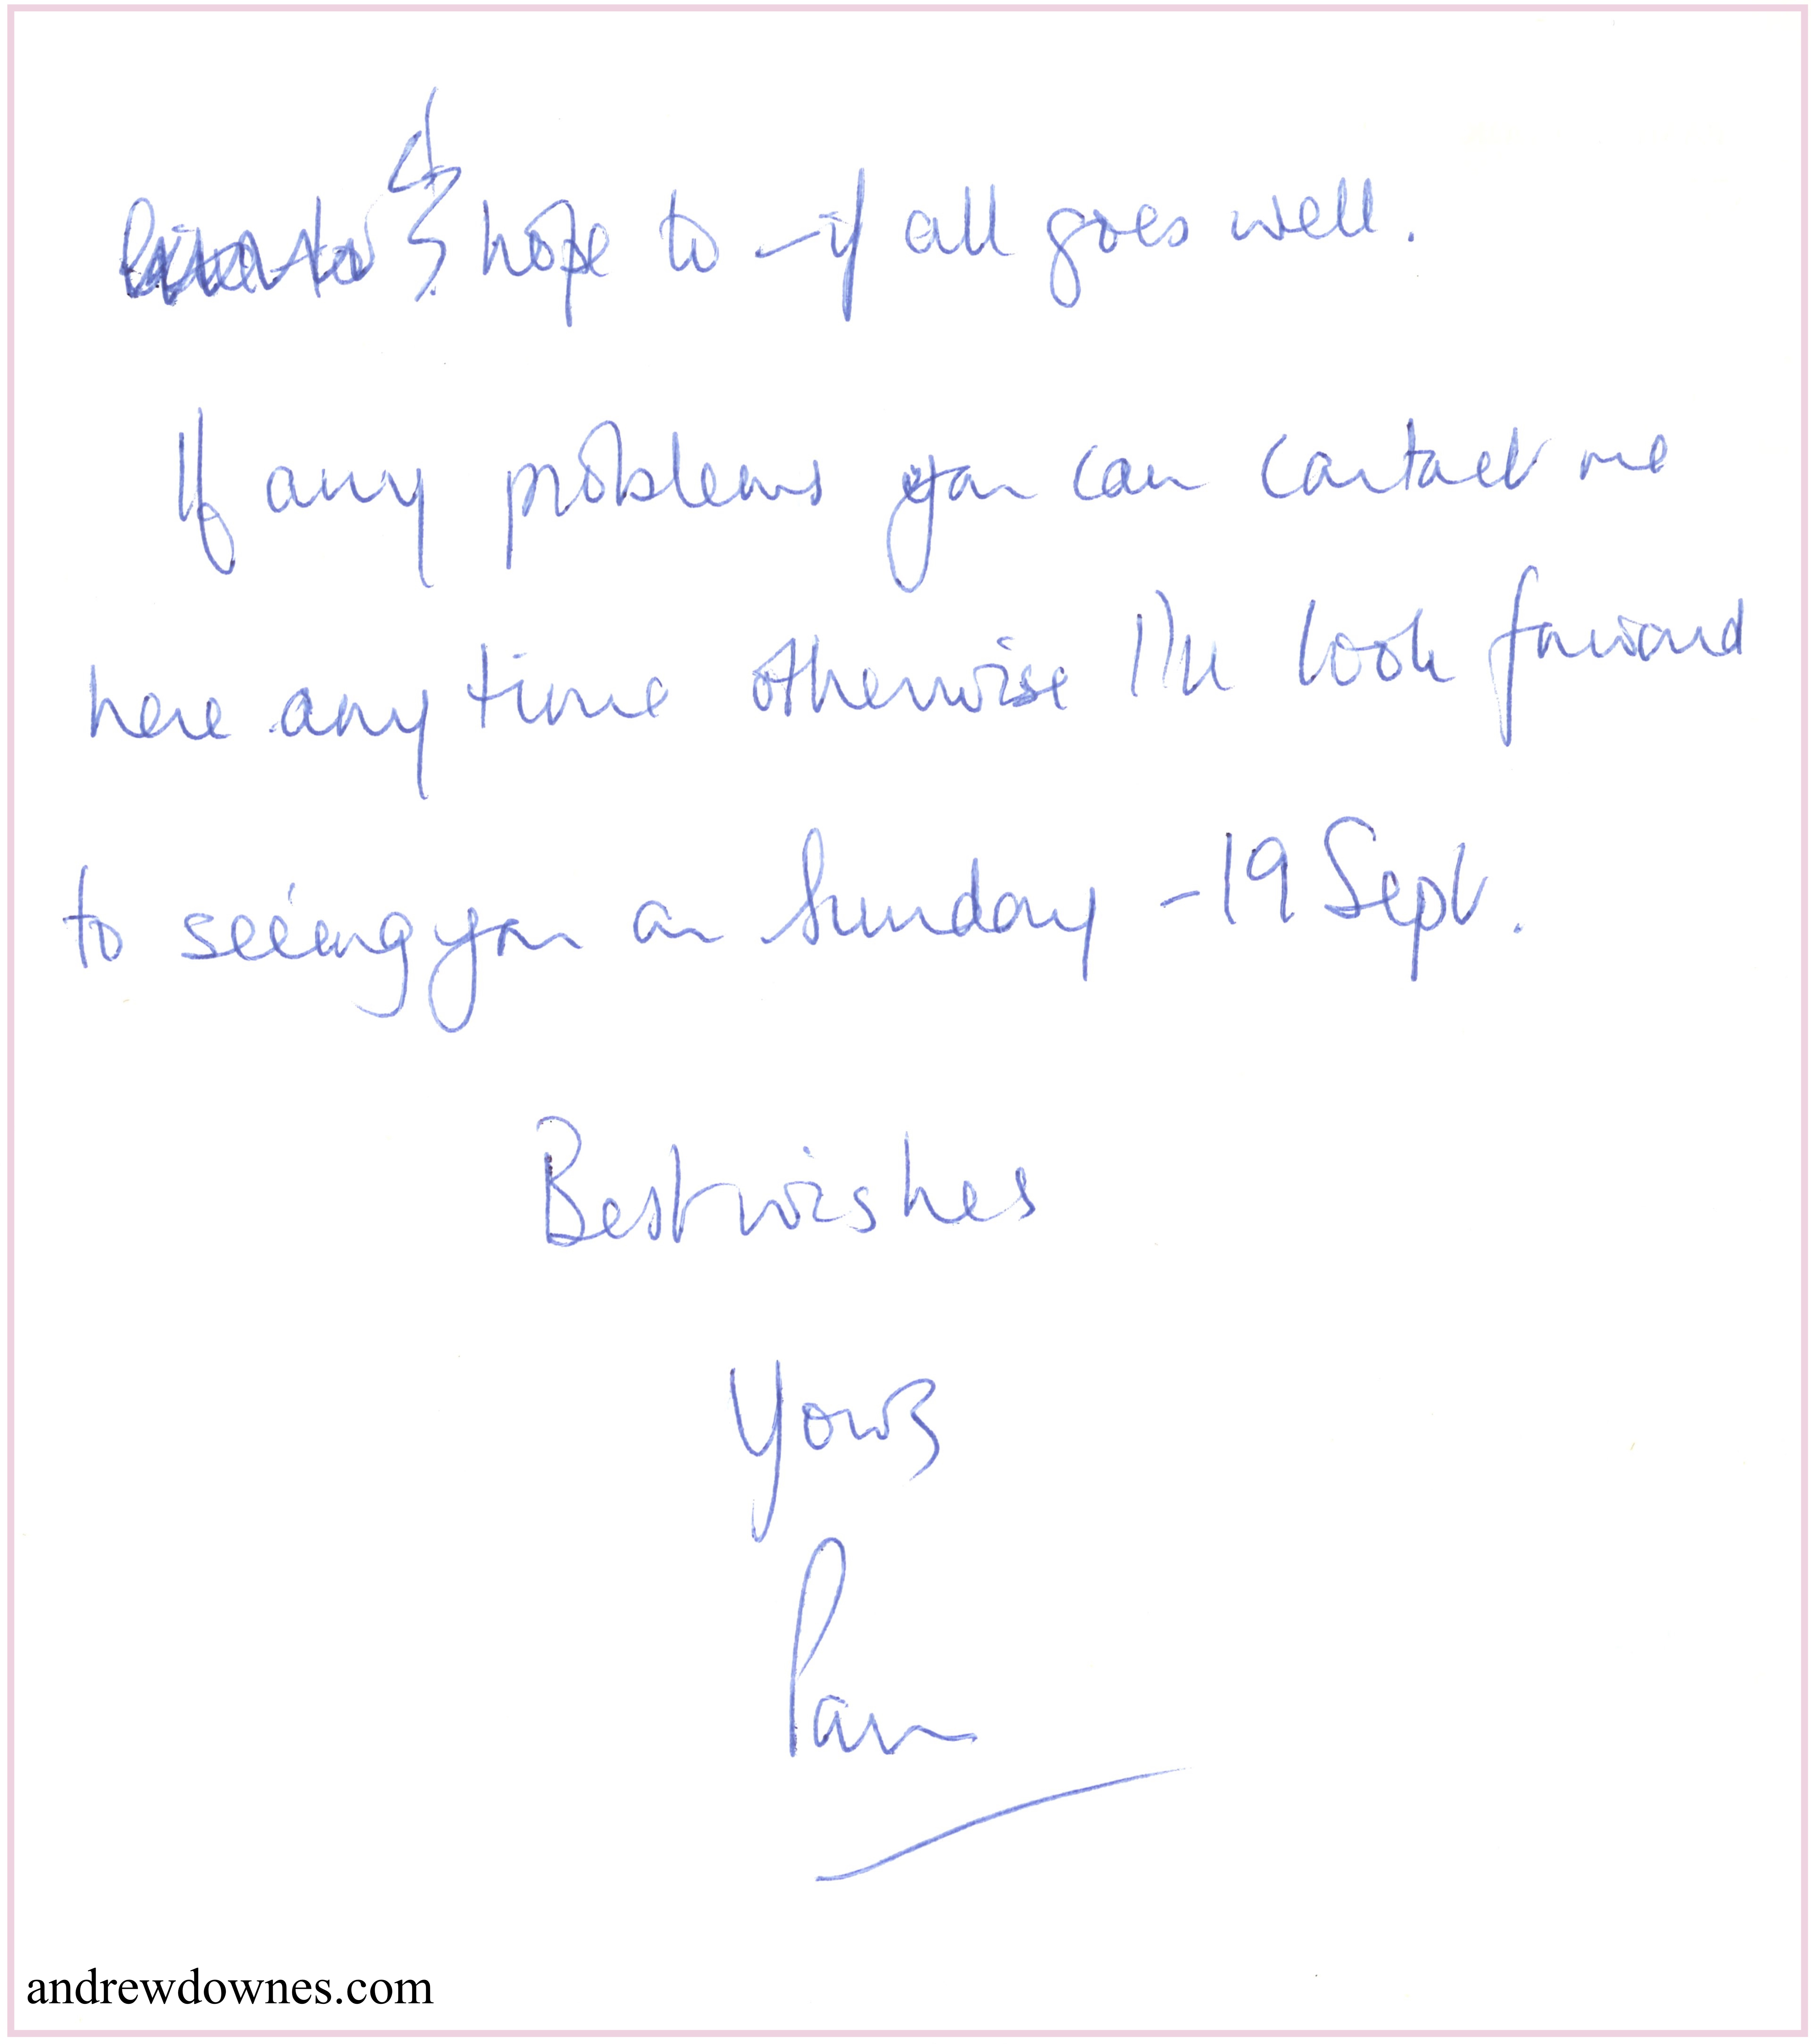 & hope to - if all goes well.
If any problems you can contact me
here any time otherwise I'll look forward
to seeing you on Sunday - 19 Sept.
Best wishes
Yours
Pam
andrewdownes.com